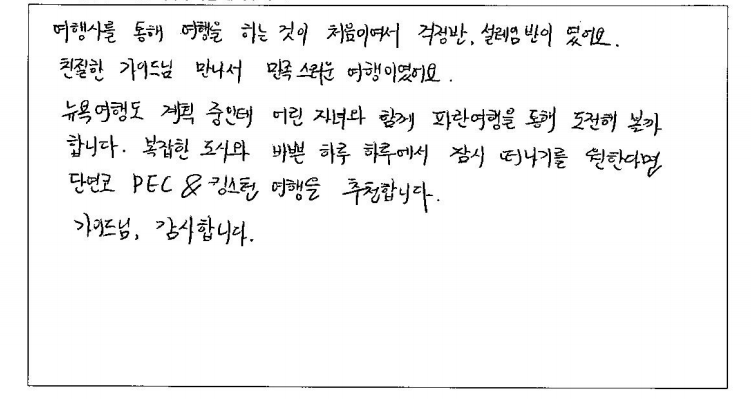 여행사를 통해 여행을 하는 것이 처음이여서 걱정반, 설레임 반이 였어요.
친절한 가이드님 만나서 만족스러운 여행이였어요.
뉴욕여행도 계획 중인데 어린 자녀와 함께 파란여행을 통해 도전해 볼까
합니다. 복잡한 도시와 바쁜 하루 하루에서 잠시 떠나기를 원한다면
단연코 PEC & 킹스턴 여행을 추천합니다.
가이드님, 감사합니다.